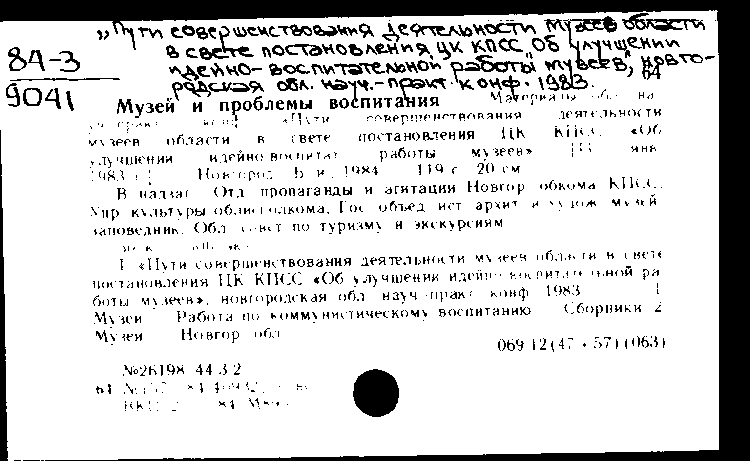 „Пути совершенствования деятельности музеев области
в свете постановления ЦК КПСС „Об улучшении
идейно-воспитательной работы музеев", новго-
родская обл. науч.-практ. конф. 1983.
84-3
9041
64
Музей и проблемы воспитания Материалы
«Пути совершенствования деятельности
музеев области в свете постановления ЦК КПСС «Об
улучшении идейно-воспитат работы музеев» янв
1983 Новгород Б и 1984 119 с 20 см
В надзаг Отд пропаганды и агитации Новгор обкома КПСС,
Упр культуры облисполкома, Гос объед ист архит и худож музей
заповедник, Обл совет по туризму и экскурсиям
I «Пути совершенствования деятельности музеев области в свете
постановления ЦК КПСС «Об улучшении идейно-воспитательной ра
боты музеев», новгородская обл науч-практ конф 1983 1
Музеи Работа по коммунистическому воспитанию Сборники 2
Музеи Новгор обл
069 12(47 + 57)(063)
№26198 44 3 2
64